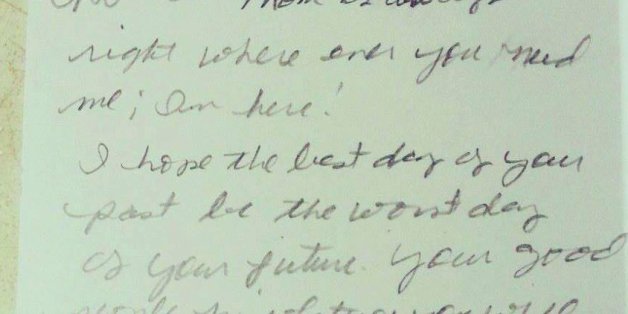 Mom is always
right where ever you need
me; I'm here!
I hope the best day of your
past be the worst day
of your future. Your good